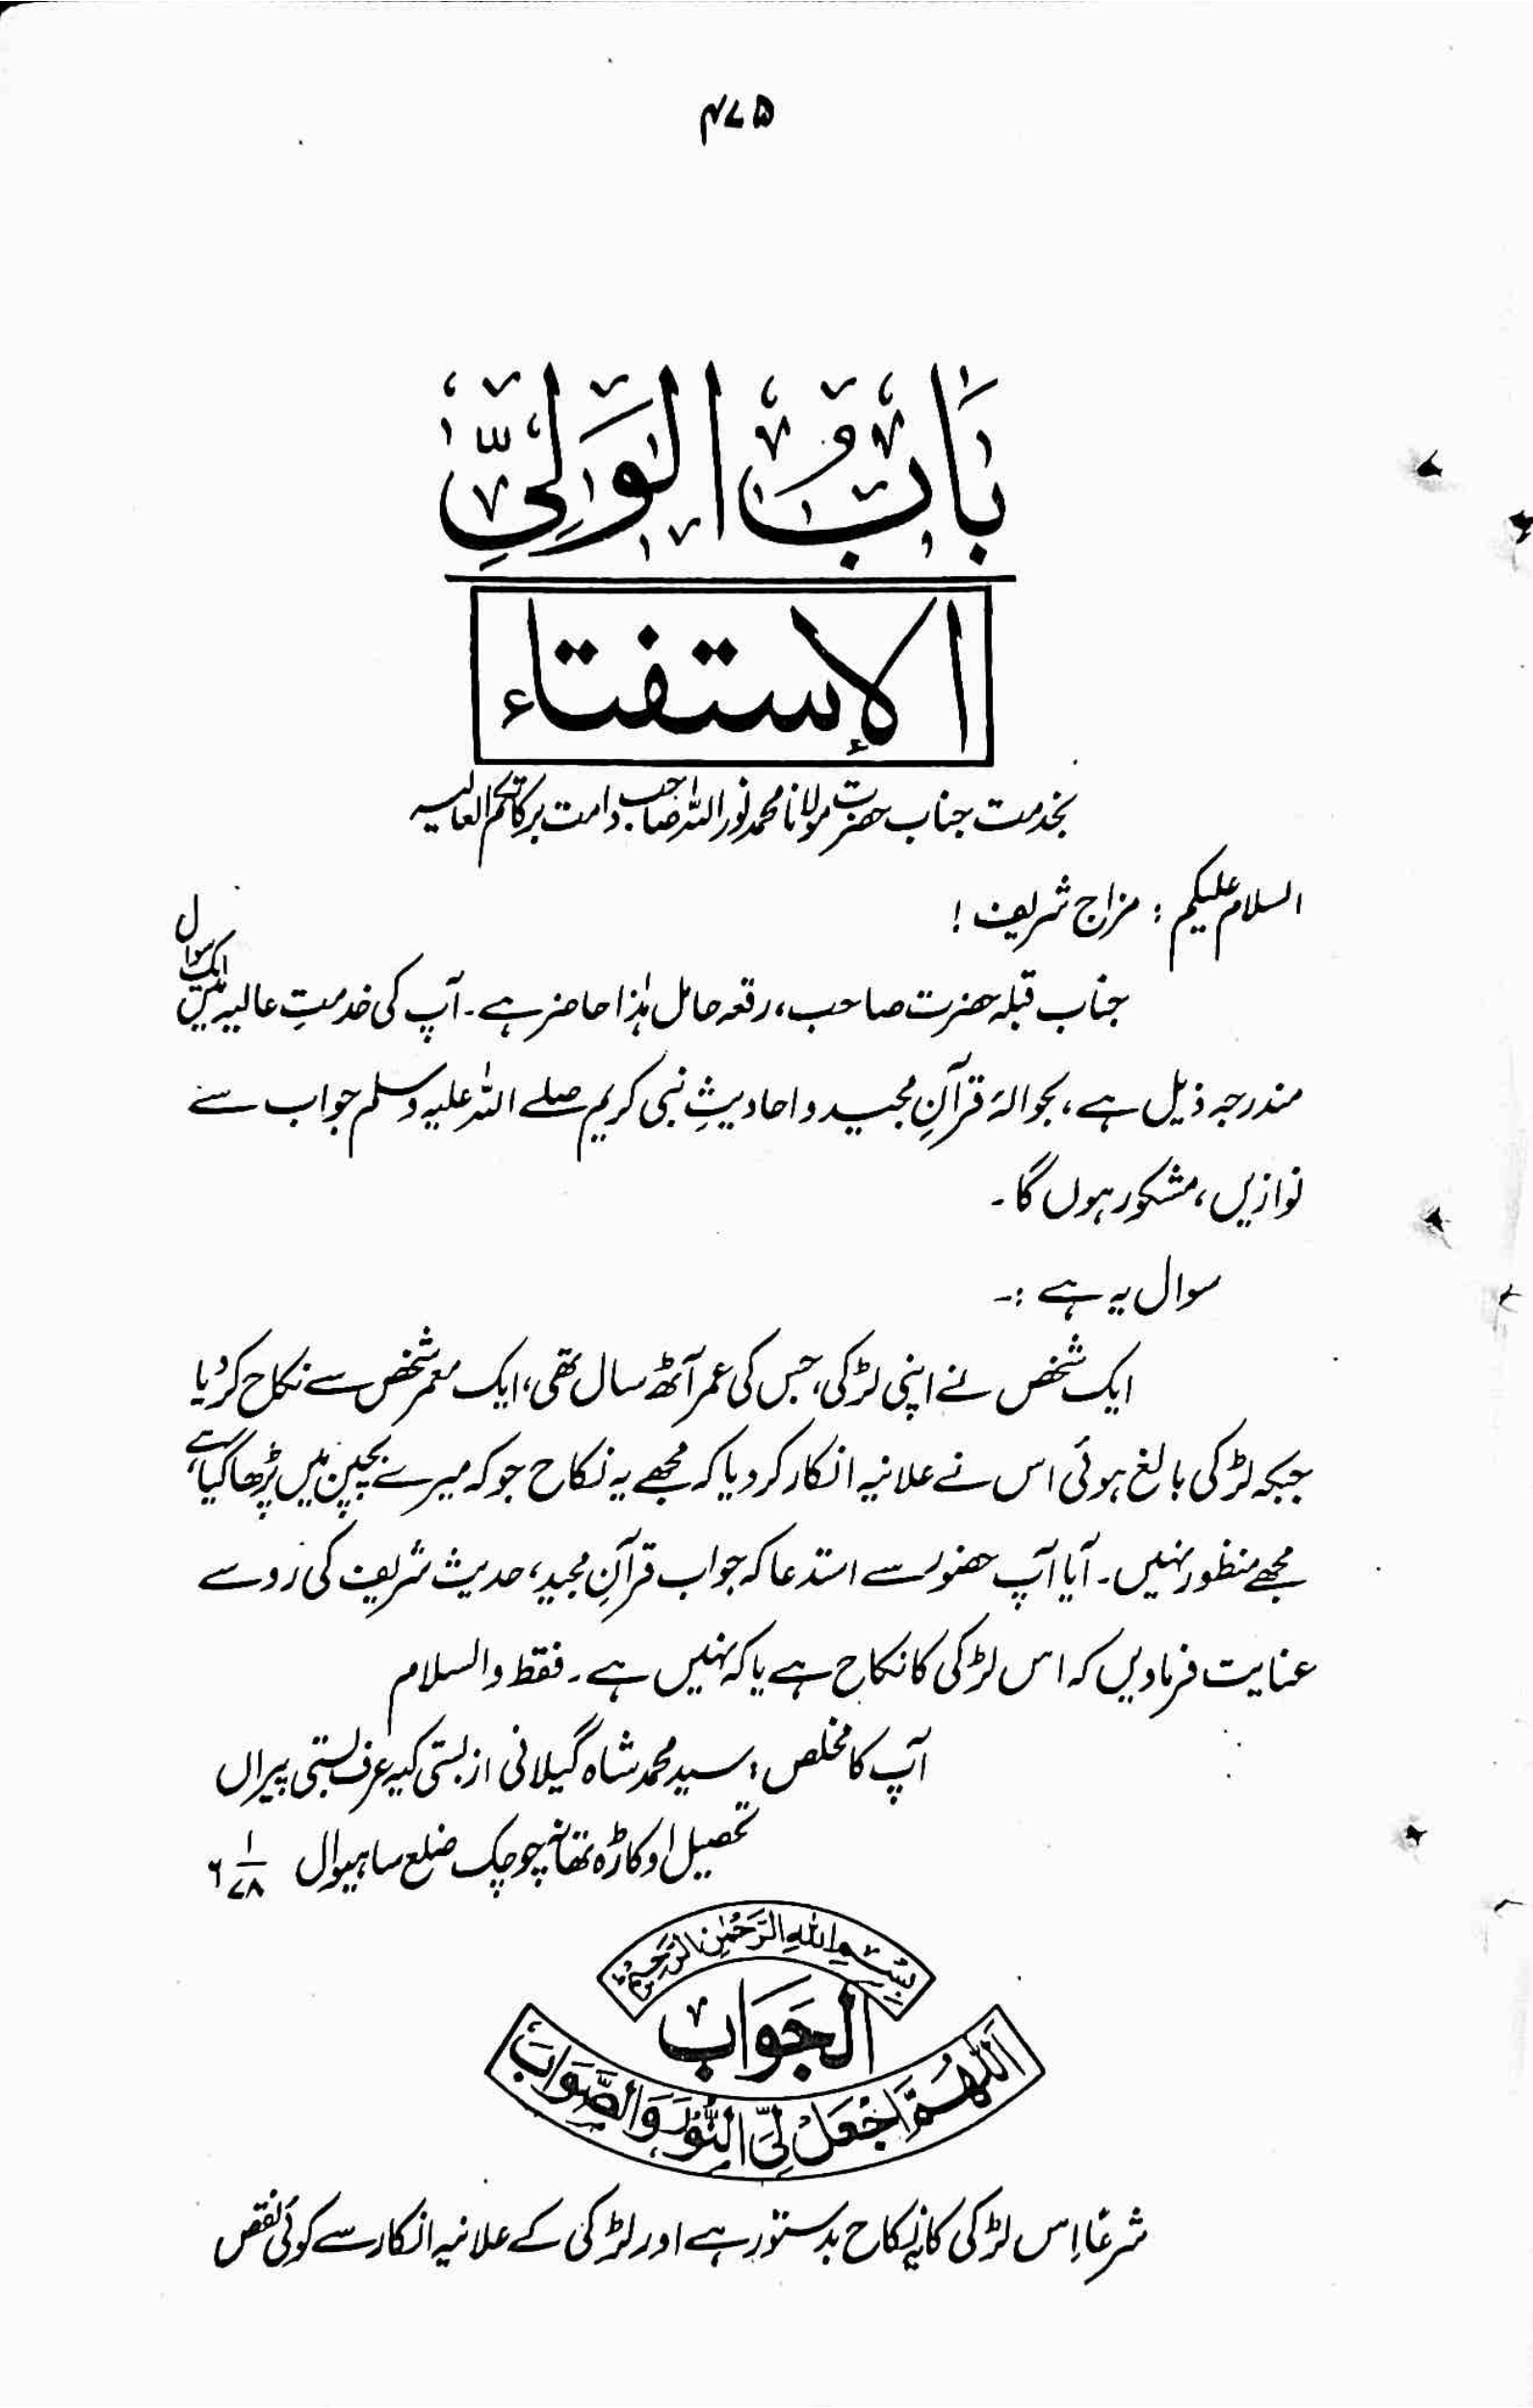 ۴۷۵
بَابُ الْوَلِیِّ
الاِستفتاء
بخدمت جناب حضرت مولانا محمد نور اللہ صاحب دامت برکاتکم العالیہ
السلام علیکم : مزاج شریف !
جناب قبلہ حضرت صاحب، رقعہ حامل ہٰذا حاضر ہے۔ آپ کی خدمتِ عالیہ میں ایک سوال
مندرجہ ذیل ہے، بحوالۂ قرآنِ مجید و احادیثِ نبی کریم صلے اللہ علیہ وسلم جواب سے
نوازیں، مشکور ہوں گا۔
سوال یہ ہے :-
ایک شخص نے اپنی لڑکی، جس کی عمر آٹھ سال تھی، ایک معمر شخص سے نکاح کر دیا
جبکہ لڑکی بالغ ہوئی اس نے علانیہ انکار کر دیا کہ مجھے یہ نکاح جو کہ میرے بچپن میں پڑھا گیا ہے،
مجھے منظور نہیں۔ آیا آپ حضور سے استدعا کہ جواب قرآنِ مجید، حدیث شریف کی رو سے
عنایت فرمادیں کہ اس لڑکی کا نکاح ہے یا کہ نہیں ہے۔ فقط والسلام
آپ کا مخلص : سید محمد شاہ گیلانی از بستی کیر عرف بستی پیراں
تحصیل اوکاڑہ تھانہ چوچک ضلع ساہیوال ۱/۷۸ ۶
بِسْمِ اللّٰهِ الرَّحْمٰنِ الرَّحِیْمِ
الجَوَاب
اَللّٰهُمَّ اجْعَلْ لِیَ النُّوْرَ وَالصَّوَابَ
شرعًا اِس لڑکی کا یہ نکاح بدستور ہے اور لڑکی کے علانیہ انکار سے کوئی نقص